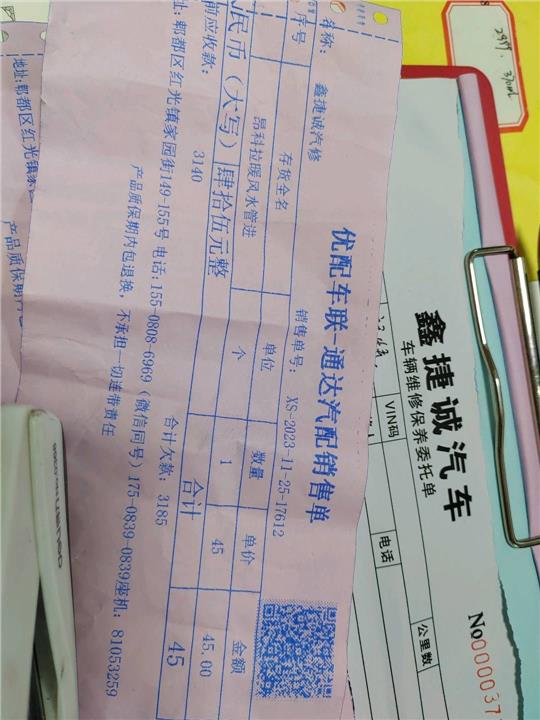 优配车联-通达汽配销售单
名称: 鑫捷诚汽修 销售单号: XS-2023-11-25-17612
序号 存货全名 单位 数量 单价 金额
昂科拉暖风水管进 个 1 45 45.00
合计 45
民币（大写） 肆拾伍元整
前应收款: 3140 合计欠款: 3185
地址:郫都区红光镇家园街149-155号 电话:155-0808-6969（微信同号）175-0839-0839座机: 81053259
产品质保期内包退换，不承担一切连带责任
地址:郫都区红光镇家
产品质保期内
鑫捷诚汽车
车辆维修保养委托单
No0000037
VIN码 电话 公里数